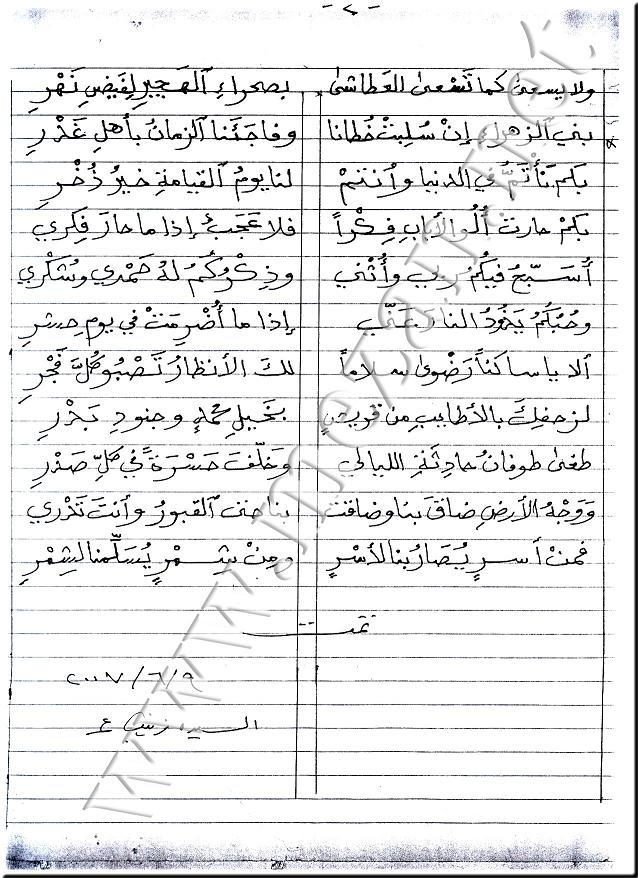 - ٢ -
ولا يسعى كما تَسْعى العَطاشى بصحراءِ الهجيرِ لِفَيضِ نَهْرِ
بني الزهراء إنْ سُلِبتْ خُطانا وفاجَئَنا الزمانُ بأهلِ غَدْرِ
بكم نَأْتَمُّ في الدنيا وأنتمْ لنا يومُ القيامةِ خيرُ ذُخْرِ
بكمْ حارتْ أُلُو الألبابِ فِكْراً فلا عَجَبٌ إذا ما حارَ فِكري
أُسَبّحُ فيكُمُ ربي وأُثْني وذِكْرُكُمُ لهُ حَمْدي وشُكْري
وحُبُكُمُ يَذُودُ النارَ عَنّي إذا ما أُضْرِمَتْ في يومِ حشرِ
ألا يا ساكناً رَضْوى سلاماً لكَ الأنظارُ تَصْبُو كُلَّ فَجْرِ
لزحفِكَ بالأطايبِ مِن قريشٍ بخيلِ محمدٍ وجنودِ بَدْرِ
طغى طوفانُ حادِثَةِ الليالي وخَلّفَ حَسْرَةً في كلِّ صَدْرِ
وَوَجْهُ الأرضِ ضاقَ بنا وضاقتْ بنا حتى القبورُ وأنتَ تَدْري
فمنْ أسرٍ يُصَارُ بنا لأسْرٍ ومِنْ شِمْرٍ يُسَلِّمنا لشِمْرِ
تمت
٢٠٠٧/٦/٩
السيدة زينب ع